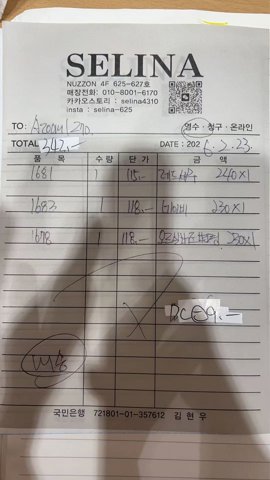 SELINA
NUZZON 4F 625-627호
매장전화: 010-8001-6170
카카오스토리 : selina4310
insta : selina-625
TO:
영수 · 청구 · 온라인
TOTAL 342.-
DATE : 202 6. 2. 23.
품 목 수 량 단 가 금 액
1681 1 115.- 240×1
1682 1 118.- 네이비 230×1
1678 1 118.- 230×1
DC 9.-
국민은행 721801-01-357612 김 현 우